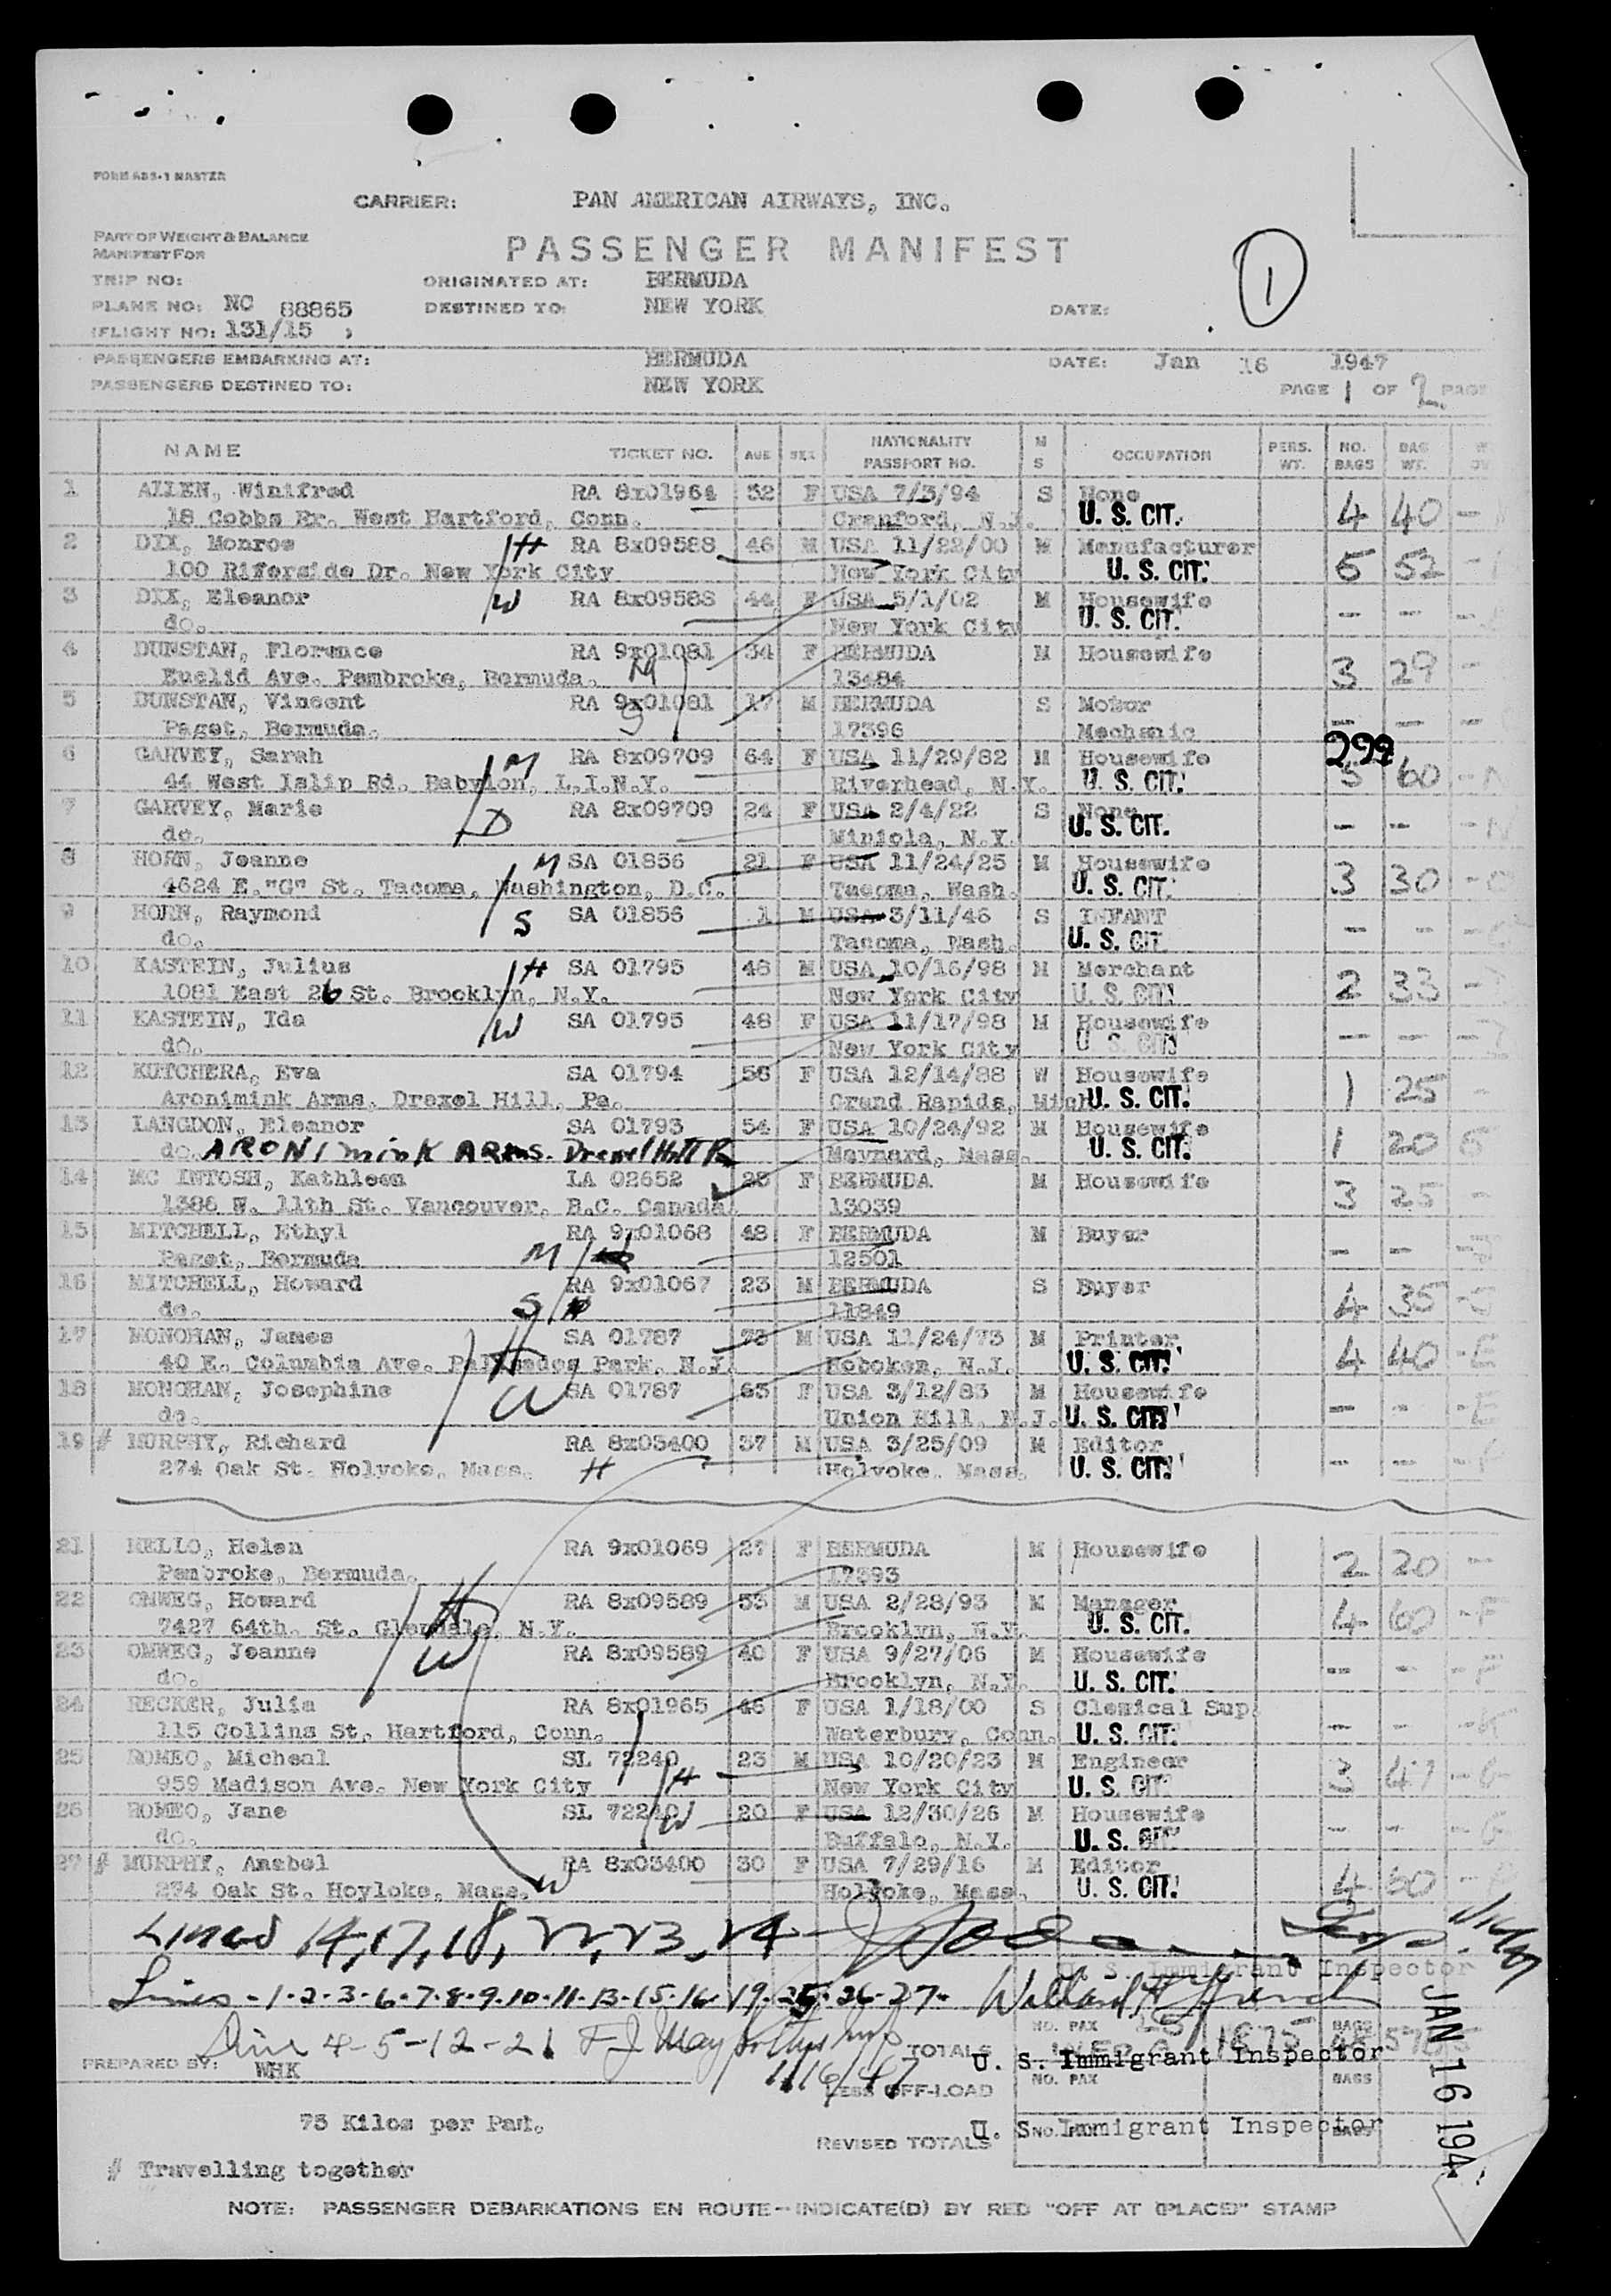 FORM ABS-1 MASTER
CARRIER: PAN AMERICAN AIRWAYS, INC.
PART OF WEIGHT & BALANCE
MANIFEST FOR
PASSENGER MANIFEST
1
TRIP NO: ORIGINATED AT: BERMUDA
PLANE NO: NC 88865 DESTINED TO: NEW YORK DATE:
(FLIGHT NO: 131/15 )
PASSENGERS EMBARKING AT: BERMUDA DATE: Jan 16 1947
PASSENGERS DESTINED TO: NEW YORK PAGE 1 OF 2 PAGE
NAME TICKET NO. AGE SEX NATIONALITY PASSPORT NO. M S OCCUPATION PERS. WT. NO. BAGS BAG WT.
1 ALLEN, Winifred RA 8x01964 52 F USA 7/3/94 S None 4 40 -
18 Cobbs Rr. West Hartford, Conn. Cranford, N.J. U. S. CIT.
2 DIX, Monroe H RA 8x09588 46 M USA 11/22/00 M Manufacturer 5 52 -
100 Riferside Dr. New York City New York City U. S. CIT.
3 DIX, Eleanor W RA 8x09588 44 F USA 5/1/02 M Housewife - - -
do. New York City U. S. CIT.
4 DUNSTAN, Florence RA 9x01081 34 F BERMUDA M Housewife 3 29 -
Euclid Ave. Pembroke, Bermuda. M 13484
5 DUNSTAN, Vincent RA 9x01081 17 M BERMUDA S Motor - - -
Paget, Bermuda. S 17396 Mechanic
299
6 GARVEY, Sarah M RA 8x09709 64 F USA 11/29/82 M Housewife 5 60 -
44 West Islip Rd. Babylon, L.I.N.Y. Riverhead, N.Y. U. S. CIT.
7 GARVEY, Marie RA 8x09709 24 F USA 2/4/22 S None - - -
do. D Miniola, N.Y. U. S. CIT.
8 HORN, Jeanne M SA 01856 21 F USA 11/24/25 M Housewife 3 30 -
4624 E."G" St. Tacoma, Washington, D.C. Tacoma, Wash. U. S. CIT.
9 HORN, Raymond S SA 01856 1 M USA 3/11/46 S INFANT - - -
do. Tacoma, Wash. U. S. CIT
10 KASTEIN, Julius H SA 01795 48 M USA 10/16/98 M Merchant 2 33 -
1081 East 26 St. Brooklyn, N.Y. New York City U. S. CIT
11 KASTEIN, Ida W SA 01795 48 F USA 11/17/98 M Housewife - - -
do. New York City U. S. CIT
12 KUTCHERA, Eva SA 01794 58 F USA 12/14/88 W Housewife 1 25 -
Aronimink Arms. Drexel Hill, Pa. Grand Rapids, Mich U. S. CIT.
13 LANGDON, Eleanor SA 01793 54 F USA 10/24/92 M Housewife 1 20
do. ARONImink ARms. Drexel Hill Pa Maynard, Mass. U. S. CIT.
14 MC INTOSH, Kathleen LA 02652 25 F BERMUDA M Housewife 3 25 -
1386 W. 11th St. Vancouver, B.C. Canada 13039
15 MITCHELL, Ethyl RA 9x01068 48 F BERMUDA M Buyer - - -
Paget, Bermuda M 12501
16 MITCHELL, Howard RA 9x01067 23 M BERMUDA S Buyer 4 35 -
do. S 11849
17 MONOHAN, James H SA 01787 73 M USA 11/24/73 M Printer 4 40 -E
40 E. Columbia Ave. Palisades Park, N.J. Hoboken, N.J. U. S. CIT.
18 MONOHAN, Josephine W SA 01787 63 F USA 3/12/83 M Housewife - - -E
do. Union Hill, N.J. U. S. CIT.
19 # MURPHY, Richard RA 8x03400 37 M USA 3/25/09 M Editor - - -
274 Oak St. Holyoke, Mass. H Holyoke, Mass. U. S. CIT.
21 MELLO, Helen RA 9x01069 27 F BERMUDA M Housewife 2 20 -
Pembroke, Bermuda. 17393
22 OMWEG, Howard H RA 8x09589 53 M USA 2/28/93 M Manager 4 60 -F
7427 64th. St. Glendale, N.Y. Brooklyn, N.Y. U. S. CIT.
23 OMWEG, Jeanne W RA 8x09589 40 F USA 9/27/06 M Housewife - - -F
do. Brooklyn, N.Y. U. S. CIT.
24 RECKER, Julia RA 8x01965 46 F USA 1/18/00 S Clemical Sup. - - -
115 Collins St. Hartford, Conn. Waterbury, Conn. U. S. CIT.
25 ROMEO, Micheal SL 72240 23 M USA 10/20/23 M Engineer 3 47 -G
959 Madison Ave. New York City H New York City U. S. CIT
26 ROMEO, Jane SL 72240 W 20 F USA 12/30/26 M Housewife - - -G
do. Buffalo, N.Y. U. S. CIT
27 # MURPHY, Anabel RA 8x03400 30 F USA 7/29/16 M Editor 4 50 -
274 Oak St. Hoyloke, Mass. W Holyoke, Mass. U. S. CIT.
Lines 14, 17, 18, 22, 23, 24 - Insp. 1/16/47
U. S. Immigrant Inspector
Lines - 1-2-3-6-7-8-9-10-11-13-15-16-19-25-26-27- Willard H French
Line 4-5-12-21 F J May 1/16/47
NO. PAX 1875 BAGS 48
TOTALS
U. S. Immigrant Inspector
PREPARED BY: WHK
LESS OFF-LOAD NO. PAX BAGS
JAN 16 194
75 Kilos per Pax.
REVISED TOTALS NO. PAX BAGS
U. S. Immigrant Inspector
# Travelling together
NOTE: PASSENGER DEBARKATIONS EN ROUTE - INDICATE(D) BY RED "OFF AT (PLACE)" STAMP